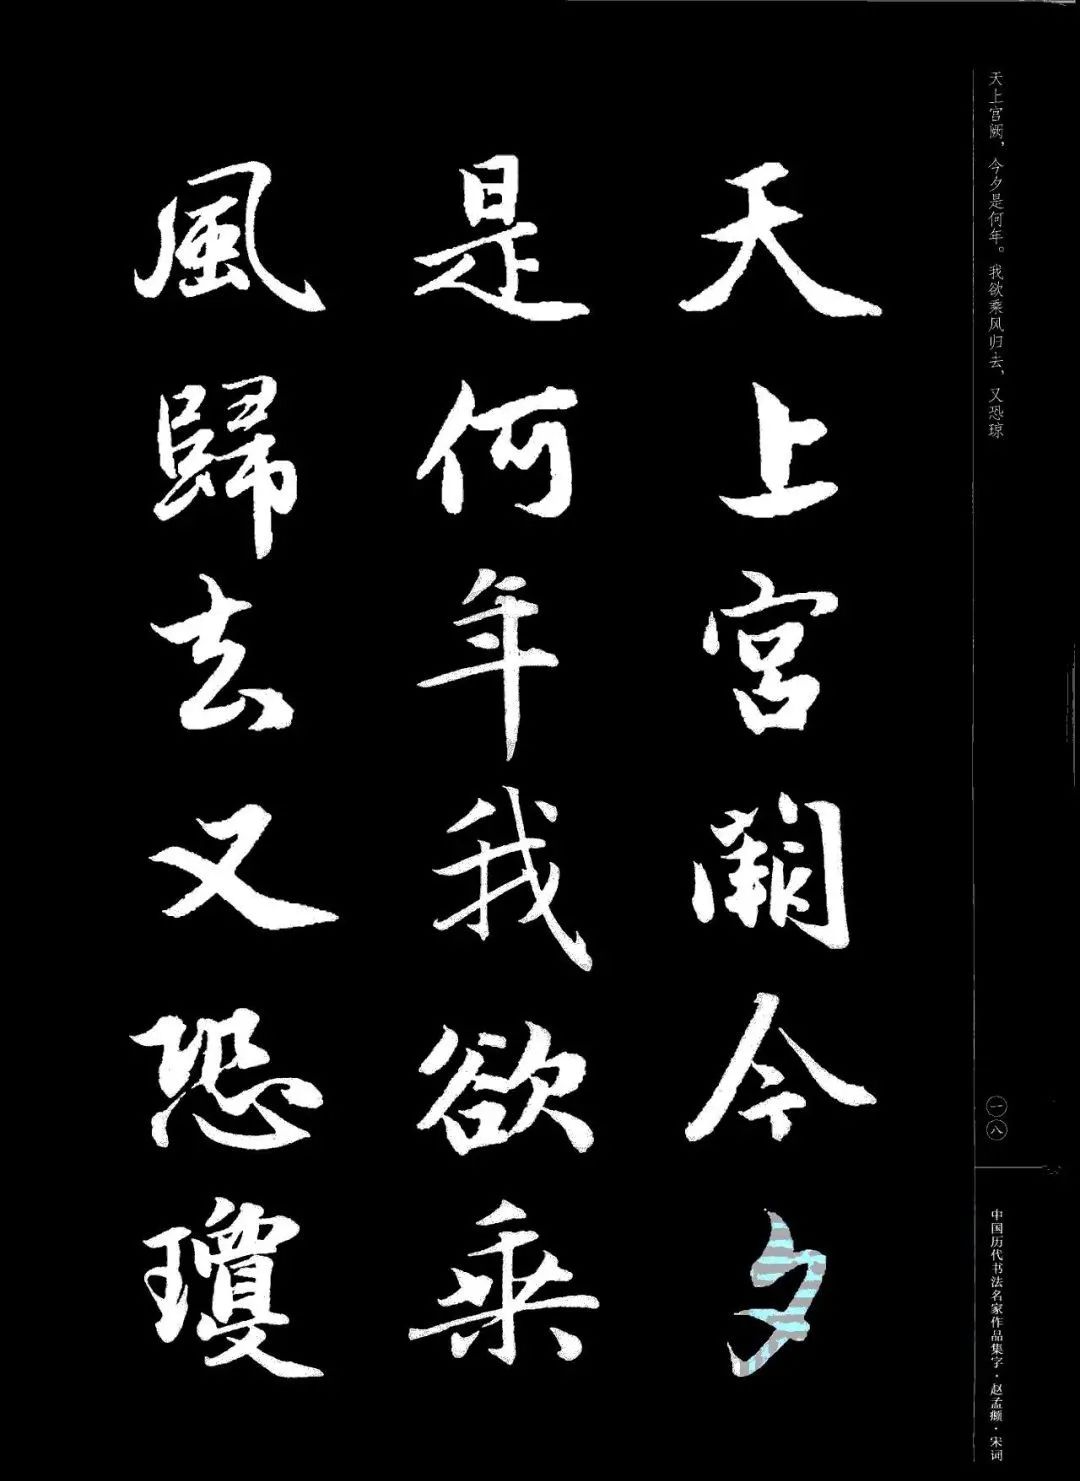 天上宫阙，今夕是何年。我欲乘风归去，又恐琼
天上宮闕今夕
是何年我欲乘
風歸去又恐瓊
一八
中国历代书法名家作品集字·赵孟頫·宋词